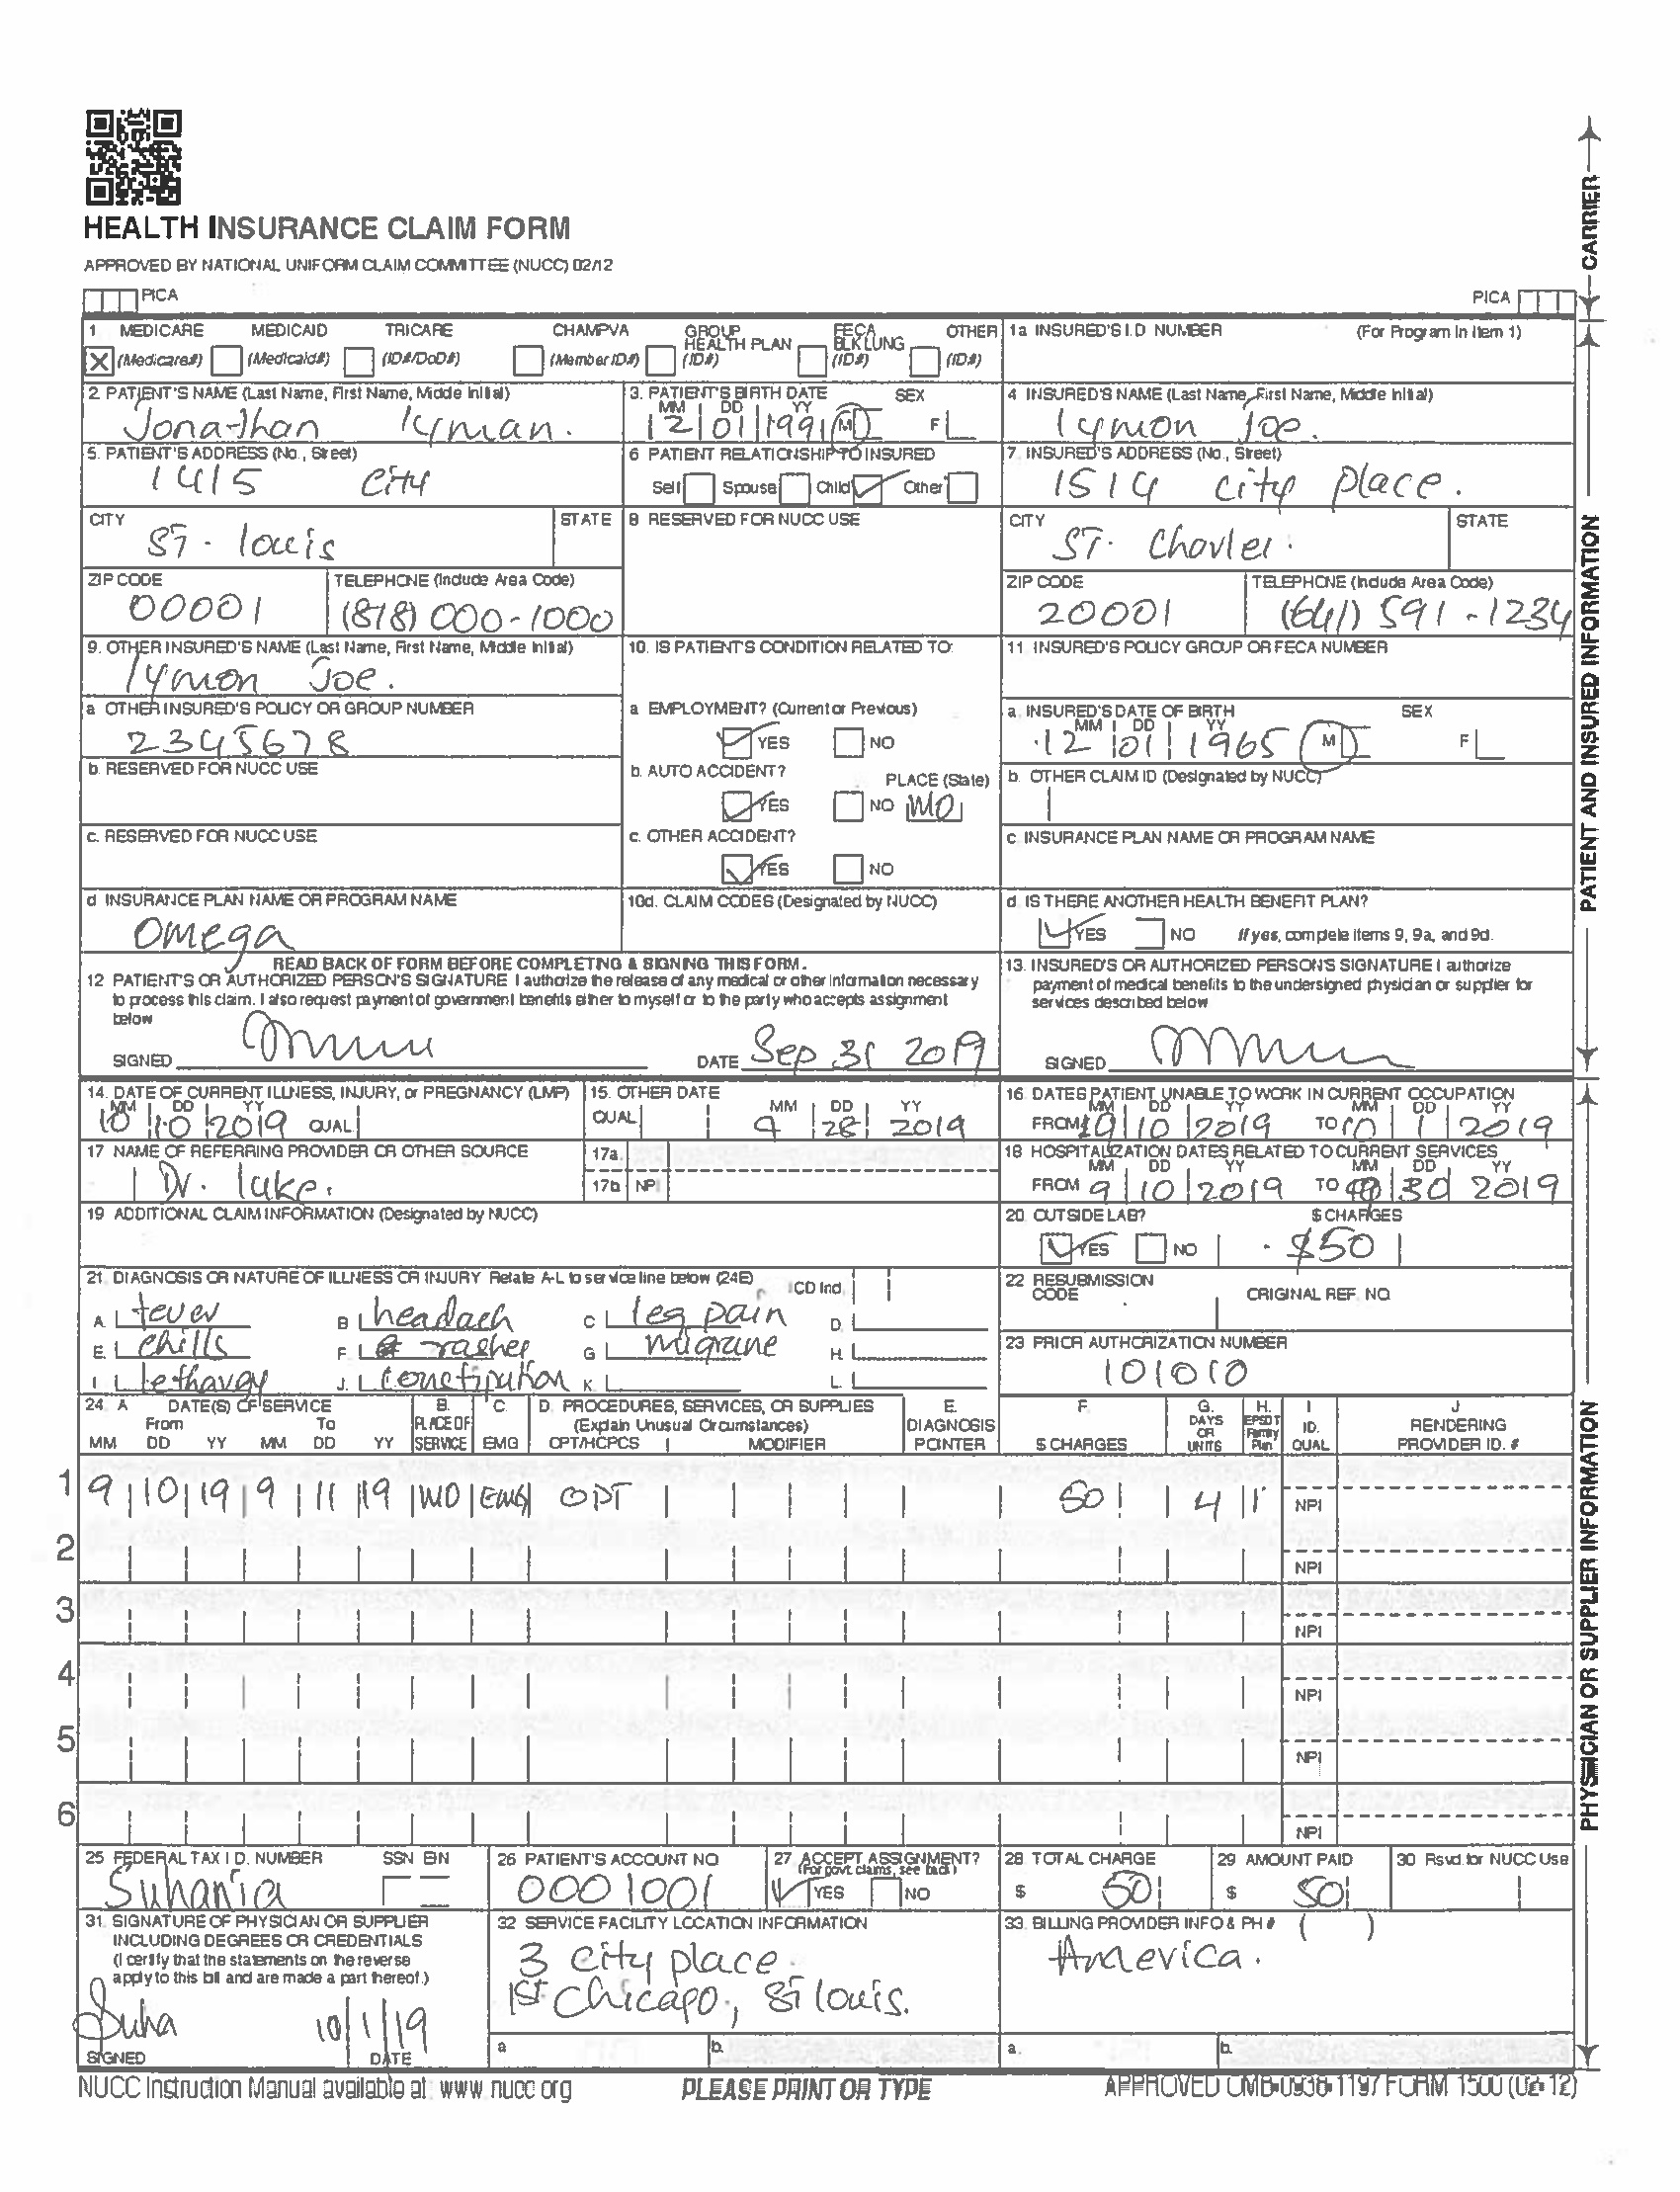 HEALTH INSURANCE CLAIM FORM
APPROVED BY NATIONAL UNIFORM CLAIM COMMITTEE (NUCC) 02/12
PICA
PICA
CARRIER
1. MEDICARE MEDICAID TRICARE CHAMPVA GROUP HEALTH PLAN FECA BLK LUNG OTHER
X (Medicare#) (Medicaid#) (ID#/DoD#) (Member ID#) (ID#) (ID#) (ID#)
1a INSURED'S I.D NUMBER (For Program In Item 1)
2. PATIENT'S NAME (Last Name, First Name, Middle Initial)
Jonathan lyman.
3. PATIENT'S BIRTH DATE SEX
MM DD YY
12 01 1991 M F
4 INSURED'S NAME (Last Name, First Name, Middle Initial)
lymon Joe.
5. PATIENT'S ADDRESS (No., Street)
1415 City
6 PATIENT RELATIONSHIP TO INSURED
Self Spouse Child Other
7. INSURED'S ADDRESS (No., Street)
1514 city place.
CITY STATE
ST. louis
8 RESERVED FOR NUCC USE
CITY STATE
ST. Charles.
ZIP CODE TELEPHONE (Include Area Code)
00001 (818) 000-1000
ZIP CODE TELEPHONE (Include Area Code)
20001 (641) 591-1234
9. OTHER INSURED'S NAME (Last Name, First Name, Middle Initial)
lymon Joe.
10. IS PATIENT'S CONDITION RELATED TO:
11. INSURED'S POLICY GROUP OR FECA NUMBER
a OTHER INSURED'S POLICY OR GROUP NUMBER
2345678
a EMPLOYMENT? (Current or Previous)
YES NO
a. INSURED'S DATE OF BIRTH SEX
MM DD YY
12 01 1965 M F
b. RESERVED FOR NUCC USE
b. AUTO ACCIDENT? PLACE (State)
YES NO MO
b. OTHER CLAIM ID (Designated by NUCC)
c. RESERVED FOR NUCC USE
c. OTHER ACCIDENT?
YES NO
c INSURANCE PLAN NAME OR PROGRAM NAME
d INSURANCE PLAN NAME OR PROGRAM NAME
Omega
10d. CLAIM CODES (Designated by NUCC)
d. IS THERE ANOTHER HEALTH BENEFIT PLAN?
YES NO If yes, complete items 9, 9a, and 9d.
PATIENT AND INSURED INFORMATION
READ BACK OF FORM BEFORE COMPLETING & SIGNING THIS FORM.
12 PATIENT'S OR AUTHORIZED PERSON'S SIGNATURE I authorize the release of any medical or other information necessary
to process this claim. I also request payment of government benefits either to myself or to the party who accepts assignment
below
SIGNED DATE Sep 31 2019
13. INSURED'S OR AUTHORIZED PERSON'S SIGNATURE I authorize
payment of medical benefits to the undersigned physician or supplier for
services described below
SIGNED
14. DATE OF CURRENT ILLNESS, INJURY, or PREGNANCY (LMP)
MM DD YY
10 10 2019 QUAL
15. OTHER DATE
QUAL MM DD YY
9 28 2019
16. DATES PATIENT UNABLE TO WORK IN CURRENT OCCUPATION
MM DD YY MM DD YY
FROM 10 10 2019 TO 10 1 2019
17 NAME OF REFERRING PROVIDER OR OTHER SOURCE
Dr. luke.
17a.
17b NPI
18 HOSPITALIZATION DATES RELATED TO CURRENT SERVICES
MM DD YY MM DD YY
FROM 9 10 2019 TO 30 2019
19 ADDITIONAL CLAIM INFORMATION (Designated by NUCC)
20. OUTSIDE LAB? $ CHARGES
YES NO $50
21. DIAGNOSIS OR NATURE OF ILLNESS OR INJURY Relate A-L to service line below (24E) ICD Ind.
A. fever B headach C leg pain D.
E. chills F. rashes G migrane H.
I. lethargy J. constipution K. L.
22 RESUBMISSION CODE ORIGINAL REF. NO.
23 PRIOR AUTHORIZATION NUMBER
101010
24. A DATE(S) OF SERVICE B. C. D. PROCEDURES, SERVICES, OR SUPPLIES E. F. G. H. I J
From To PLACE OF (Explain Unusual Circumstances) DIAGNOSIS DAYS OR EPSDT Family ID. RENDERING
MM DD YY MM DD YY SERVICE EMG CPT/HCPCS MODIFIER POINTER $ CHARGES UNITS Plan QUAL PROVIDER ID. #
1 9 10 19 9 11 19 MO EMG ODT 50 4 1 NPI
2 NPI
3 NPI
4 NPI
5 NPI
6 NPI
PHYSICIAN OR SUPPLIER INFORMATION
25 FEDERAL TAX I D. NUMBER SSN EIN
Suhania
26 PATIENT'S ACCOUNT NO
0001001
27 ACCEPT ASSIGNMENT?
(For govt. claims, see back)
YES NO
28 TOTAL CHARGE
$ 50
29 AMOUNT PAID
$ 50
30 Rsvd. for NUCC Use
31. SIGNATURE OF PHYSICIAN OR SUPPLIER
INCLUDING DEGREES OR CREDENTIALS
(I certify that the statements on the reverse
apply to this bill and are made a part thereof.)
Suha 10/1/19
SIGNED DATE
32 SERVICE FACILITY LOCATION INFORMATION
3 city place.
1st Chicago, St louis.
a b.
33. BILLING PROVIDER INFO & PH # ( )
America.
a. b.
NUCC Instruction Manual available at: www.nucc.org
PLEASE PRINT OR TYPE
APPROVED OMB-0938-1197 FORM 1500 (02-12)